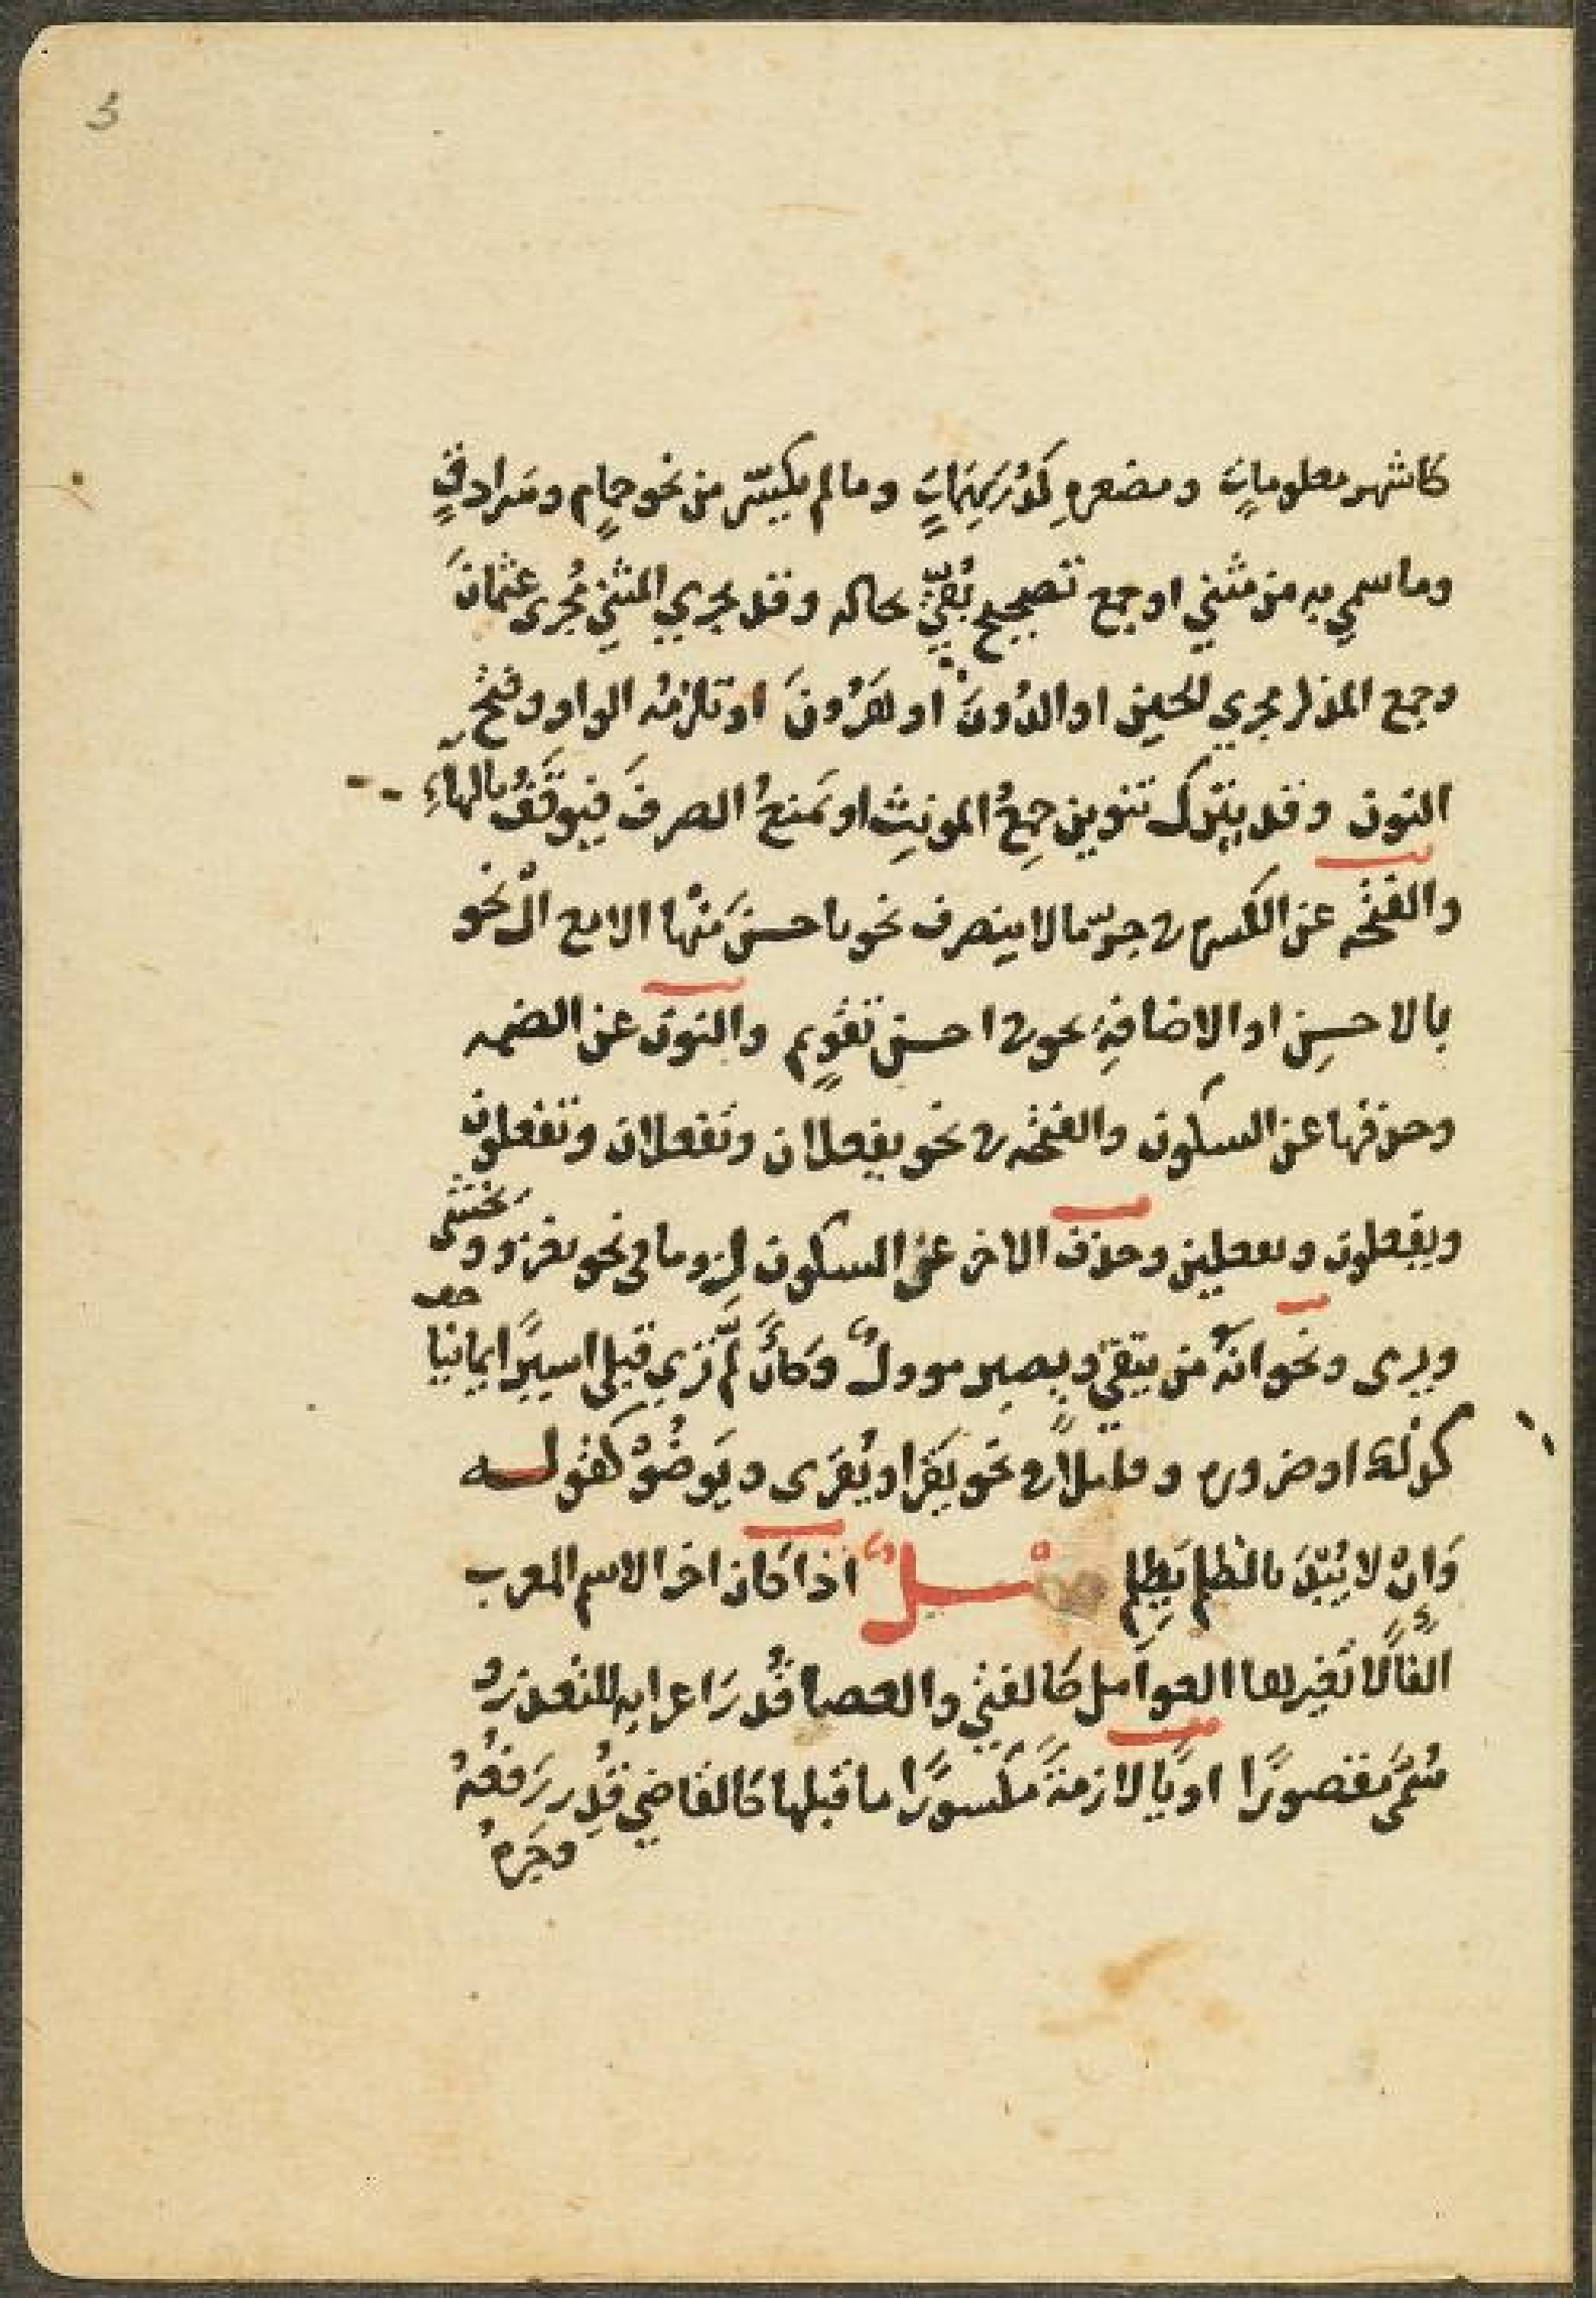 كاشهر معلوماتٍ ومصغرهِ كدُرَيهِمَاتٍ ومالم يكسّر من نحو حمامٍ وسرادقٍ
وما سمي به من مثني او جمع تصحيح بُقيّ بحاله وقد يجري المثني مُجرى عثمانَ
وجمع المذكر مجري الحين او الدُونَ او هَرُونَ او تلزمُه الواو وفتحُ
النون وقد يترك تنوين جمعُ المونثِ او يَمنعُ الصرفَ فيوقَفُ بالهاءِ
والفتحه عن الكسره في جرّ ما لا ينصرف نحو باحسنَ مِنْها الا مع الْ نحو
بالاحسِن او الاضافةِ نحو في احسن تقويمٍ والنون عن الضمه
وحذفها عن السكون والفتحه في نحو يفعلان وتفعلان وتفعلون
ويفعلون وتفعلين وحذف الاخر عن السكون لزوما في نحو يغزو ويَخشى
ويرمى ونحو انهُ من يتقي ويصبر موولٌ وكأنْ لّم تَرَي قبلي اسيرًا يمانيا
كذلك او ضروره وقليلاً في نحو يَقرا ويُقرَى ويَوضُوْ كقوله
وَانْ لا يُبْدَ بالظلم يَظِلم فصلٌ اذا كان اخر الاسم المعرب
الفًا لا تُغيرها العوامل كالفتي والعصا قُدرَ اعرابه للتعذرُ
سُمَّيَ مقصورًا او يَا لازمةً مكسورًا ما قبلها كالقاضي قُدِر رَفعُهُ
وجَرهُ